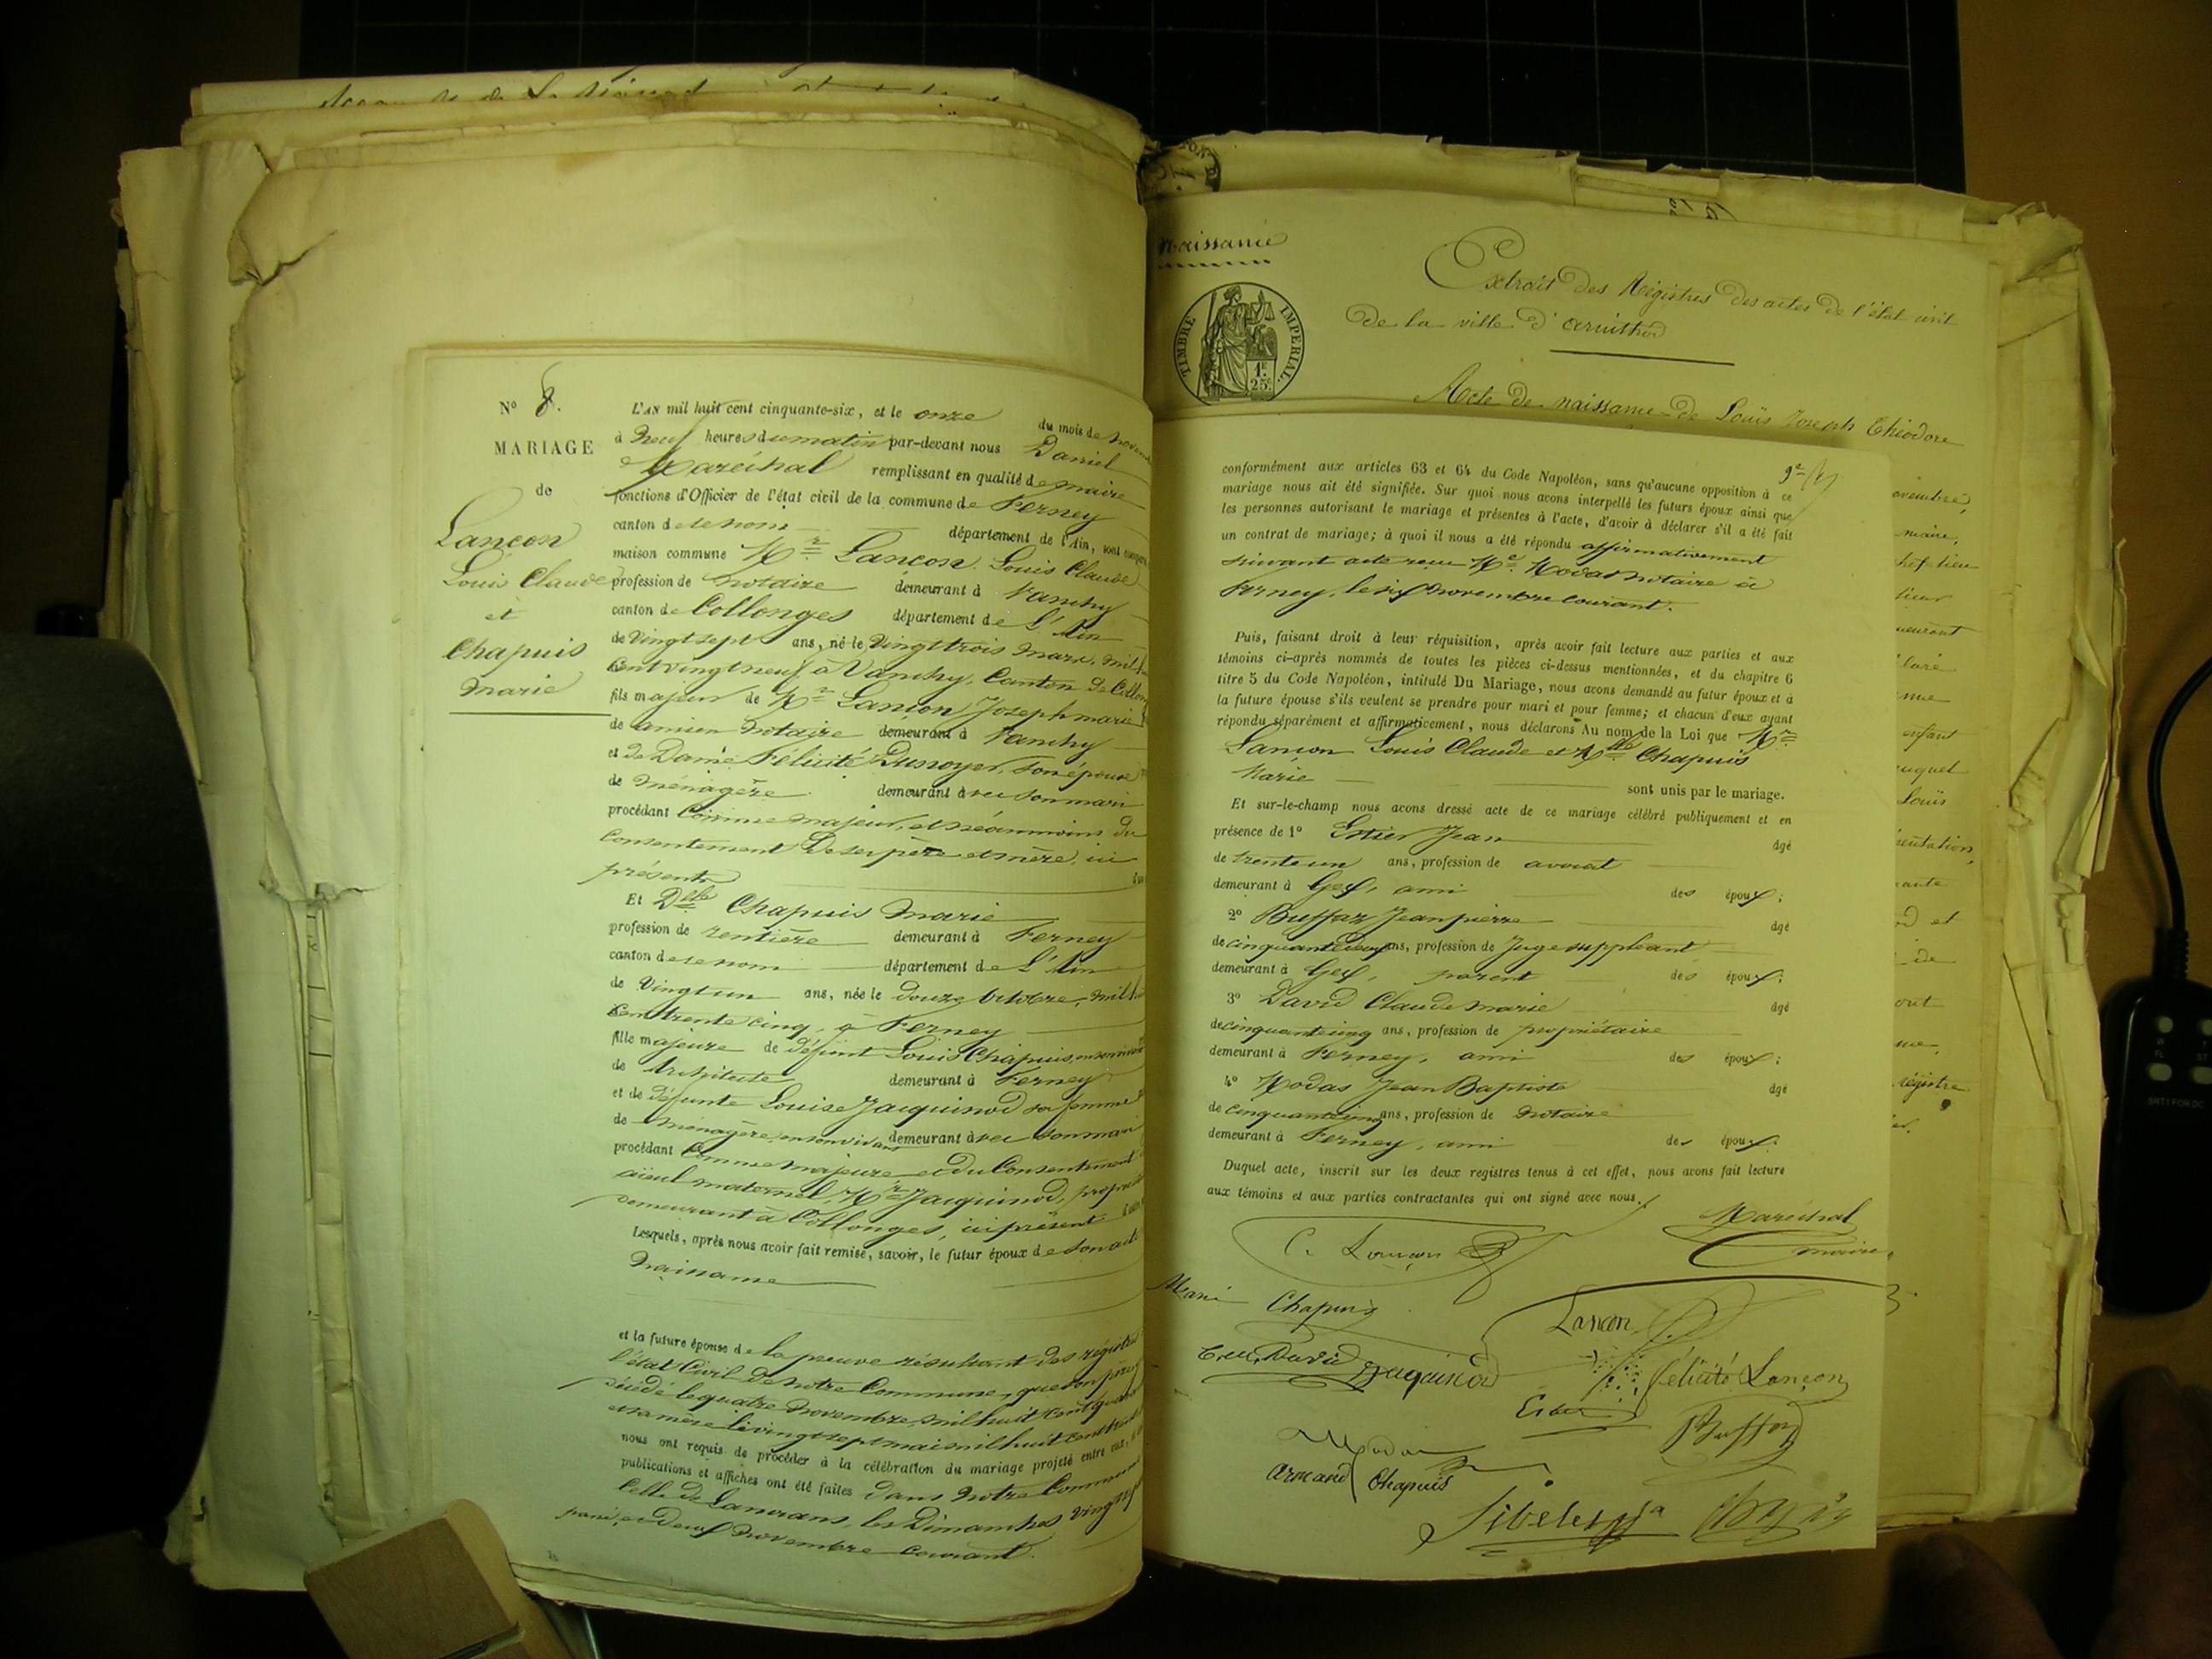 N° 8.
MARIAGE
de
Lançon
Louis Claude
et
Chapuis
Marie
L'AN mil huit cent cinquante-six, et le onze du mois de
à neuf heures du matin par-devant nous Daniel
Maréchal remplissant en qualité de maire
fonctions d'Officier de l'état civil de la commune de Ferney
canton de ce nom département de l'Ain, sont
maison commune Mr Lançon Louis Claude
profession de notaire demeurant à Vanchy
canton de Collonges département de L'Ain
de vingt sept ans, né le vingt trois mars, mil
cent vingt neuf à Vanchy, Canton de
fils majeur de Mr Lançon Joseph marie
de ancien notaire demeurant à Vanchy
et de Dame Félicité Dunoyer, son épouse
de ménagère demeurant avec son mari
procédant comme majeur, et néanmoins du
consentement de ses père et mère, ici
présents
Et Dlle Chapuis Marie
profession de rentière demeurant à Ferney
canton de ce nom département de L'Ain
de vingt un ans, née le douze octobre, mil
cent trente cinq, à Ferney
fille majeure de défunt Louis Chapuis, en son vivant
de Architecte demeurant à Ferney
et de défunte Louise Jacquinod sa femme
de ménagère en son vivant demeurant avec son mari
procédant comme majeure et du consentement
aïeul maternel Mr Jacquinod,
demeurant à Collonges, ici présent
Lesquels, après nous avoir fait remise, savoir, le futur époux de son acte
naissance
et la future épouse de la preuve résultant des registres
l'état civil de notre commune, que son père
décédé le quatre novembre mil huit cent
et sa mère le vingt sept mai mil huit cent
nous ont requis de procéder à la célébration du mariage projeté entre eux,
publications et affiches ont été faites dans notre commune
celle de Lancrans, les Dimanches
et neuf novembre courant.
Naissance
TIMBRE IMPERIAL.
1F. 25c.
Extrait des Régistres des actes de l'état civil
de la ville d'arinthod
Acte de naissance de Louis Joseph Théodore
conformément aux articles 63 et 64 du Code Napoléon, sans qu'aucune opposition à ce
mariage nous ait été signifiée. Sur quoi nous avons interpellé les futurs époux ainsi que
les personnes autorisant le mariage et présentes à l'acte, d'avoir à déclarer s'il a été fait
un contrat de mariage; à quoi il nous a été répondu affirmativement
suivant acte reçu Me Modas notaire à
Ferney, le six novembre courant.
Puis, faisant droit à leur réquisition, après avoir fait lecture aux parties et aux
témoins ci-après nommés de toutes les pièces ci-dessus mentionnées, et du chapitre 6
titre 5 du Code Napoléon, intitulé Du Mariage, nous avons demandé au futur époux et à
la future épouse s'ils veulent se prendre pour mari et pour femme; et chacun d'eux ayant
répondu séparément et affirmativement, nous déclarons Au nom de la Loi que Mr
Lançon Louis Claude et Mlle Chapuis
Marie
sont unis par le mariage.
Et sur-le-champ nous avons dressé acte de ce mariage célébré publiquement et en
présence de 1° Estier Jean âgé
de trente un ans, profession de avocat
demeurant à Gex, ami des époux;
2° Buffaz Jean pierre âgé
de ans, profession de Juge suppléant
demeurant à Gex, parent des époux;
3° David Claude marie âgé
de cinquante cinq ans, profession de propriétaire
demeurant à Ferney, ami des époux;
4° Modas Jean Baptiste âgé
de cinquante cinq ans, profession de notaire
demeurant à Ferney, ami des époux.
Duquel acte, inscrit sur les deux registres tenus à cet effet, nous avons fait lecture
aux témoins et aux parties contractantes qui ont signé avec nous.
Maréchal
maire
C. Lançon
Marie Chapuis
Lançon
David Jaquinod
Félicité Lançon
Armand Chapuis
novembre,
maire,
chef lieu
enfant
Louis
registre